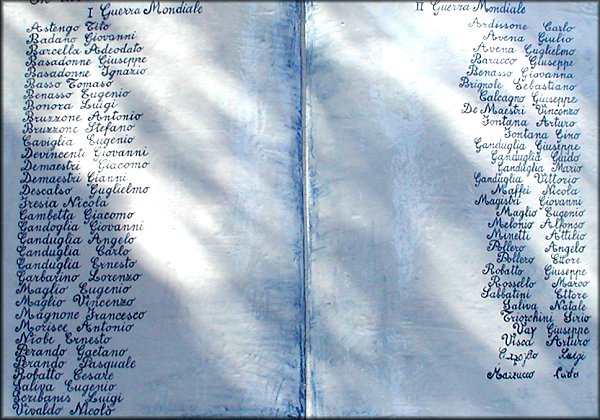 I Guerra Mondiale
Astengo Tito
Badano Giovanni
Barcella Adeodato
Basadonne Giuseppe
Basadonne Ignazio
Basso Tomaso
Benasso Eugenio
Bonora Luigi
Bruzzone Antonio
Bruzzone Stefano
Caviglia Eugenio
Devincenti Giovanni
Demaestri Giacomo
Demaestri Gianni
Descalso Guglielmo
Fresia Nicola
Gambetta Giacomo
Gandoglia Giovanni
Ganduglia Angelo
Ganduglia Carlo
Ganduglia Ernesto
Garbarino Lorenzo
Maglio Eugenio
Maglio Vincenzo
Magnone Francesco
Morisce Antonio
Niobe Ernesto
Perando Gaetano
Perando Pasquale
Robatto Cesare
Saliva Eugenio
Beribanis Luigi
Vivaldo Nicolò
II Guerra Mondiale
Ardissone Carlo
Avena Giulio
Avena Guglielmo
Baracco Giuseppe
Benasso Giovanna
Brignole Sebastiano
Calcagno Giuseppe
De Maestri Vincenzo
Fontana Arturo
Fontana Gino
Ganduglia Giuseppe
Ganduglia Guido
Ganduglia Mario
Ganduglia Vittorio
Maffei Nicola
Magistri Giovanni
Maglio Eugenio
Melonio Alfonso
Minetti Attilio
Pollero Angelo
Pollero Ettore
Robatto Giuseppe
Rossello Marco
Sabbatini Ettore
Saliva Natale
Triorchini Sirio
Vay Giuseppe
Visca Arturo
Luigi
Maizucco